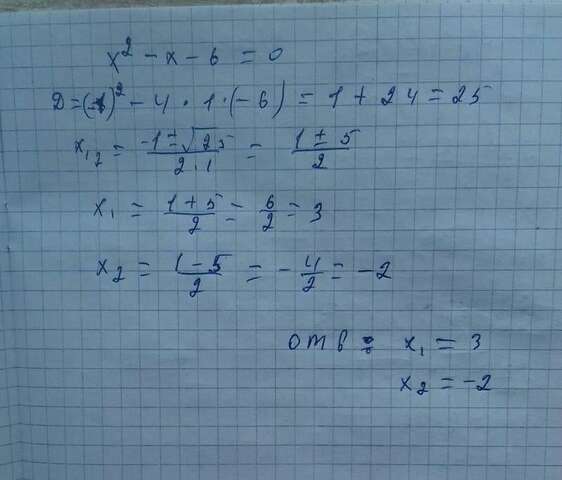 x² - x - 6 = 0
D = (-1)² - 4 · 1 · (-6) = 1 + 24 = 25
x₁,₂ = (-1 ± √25)/(2·1) = (1 ± 5)/2
x₁ = (1+5)/2 = 6/2 = 3
x₂ = (1-5)/2 = -4/2 = -2
отв: x₁ = 3
x₂ = -2